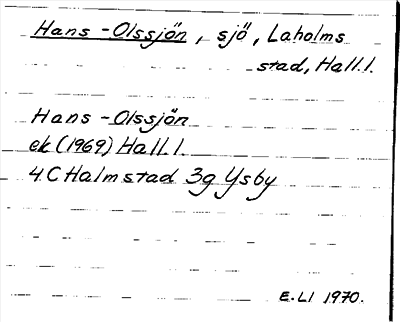 Hans-Olssjön, sjö, Laholms
stad, Hall.l.
Hans-Olssjön
ek (1969) Hall.l.
4C Halmstad 3g Ysby
E.LI 1970.